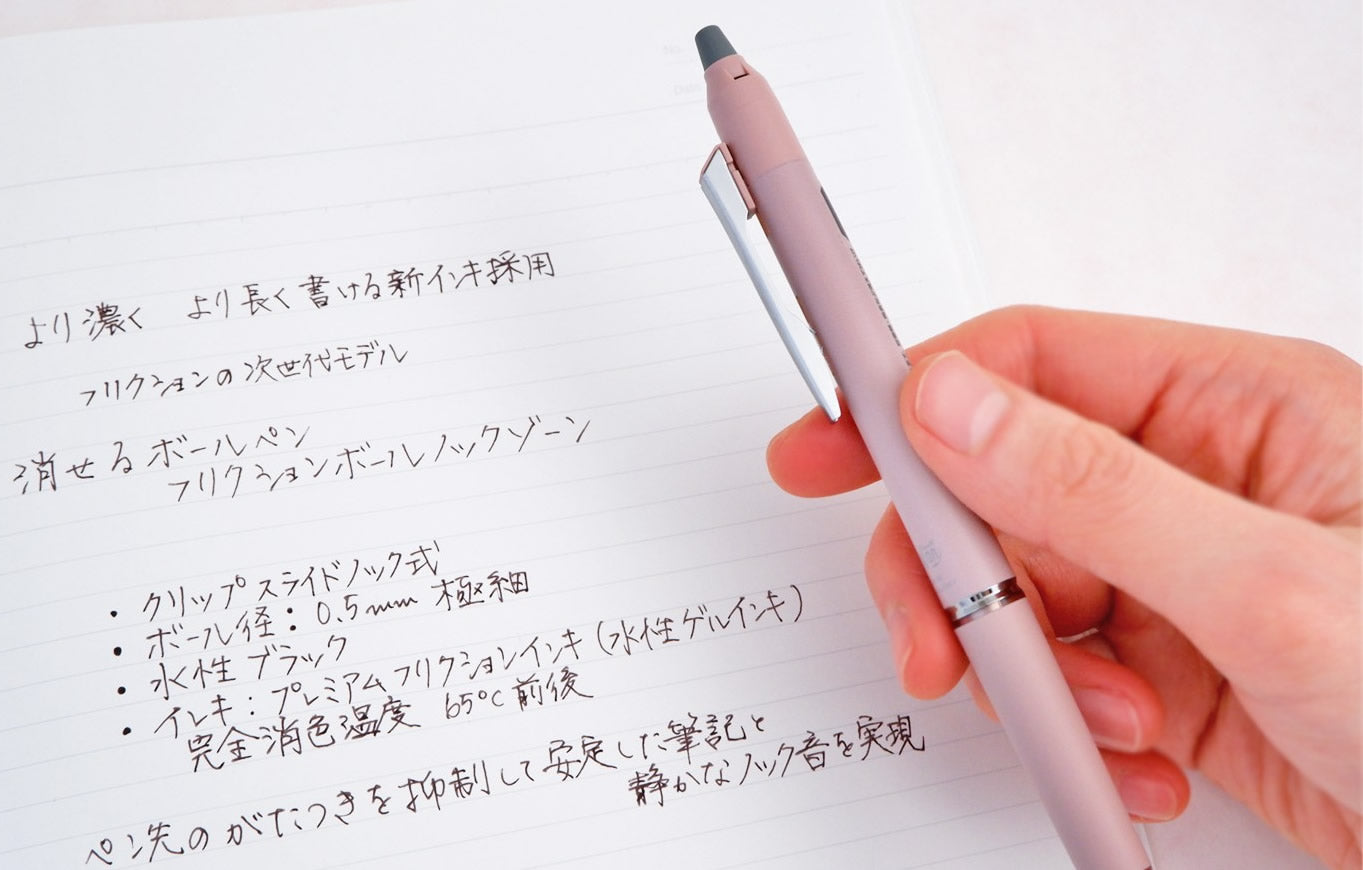 No.
Date
より濃く より長く書ける新インキ採用
フリクションの次世代モデル
消せるボールペン
フリクションボールノックゾーン
・クリップスライドノック式
・ボール径：0.5mm 極細
・水性ブラック
・インキ：プレミアムフリクションインキ(水性ゲルインキ)
完全消色温度 65℃前後
ペン先のがたつきを抑制して安定した筆記と
静かなノック音を実現